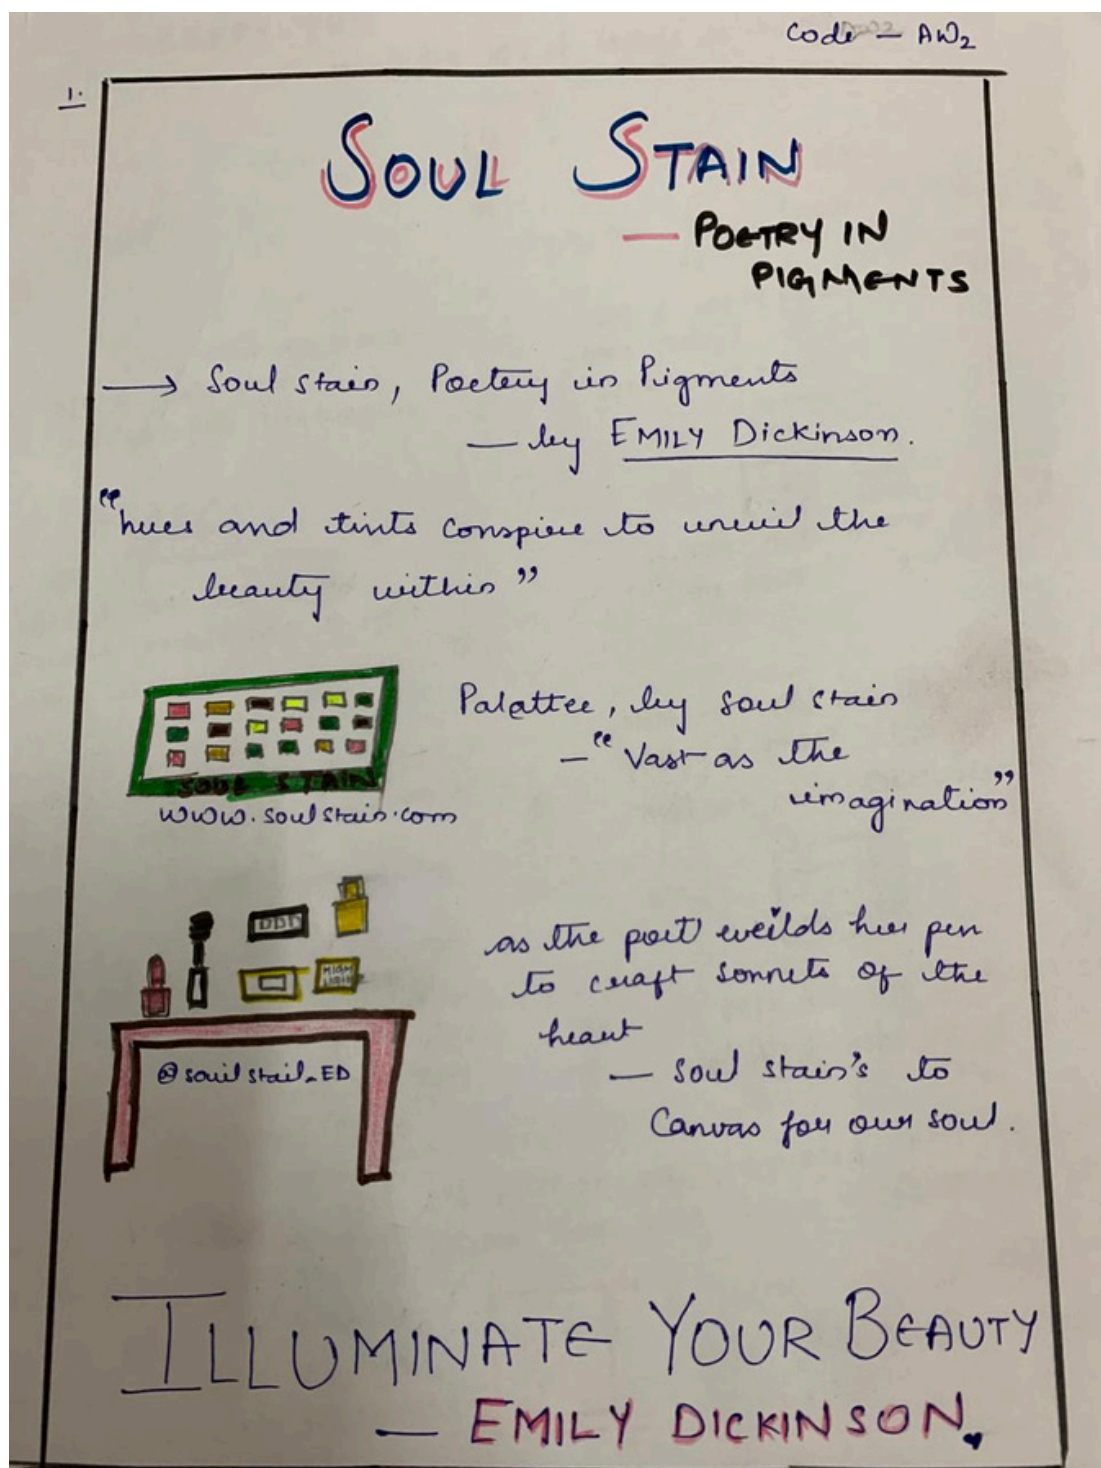 Code - AW2
1.
SOUL STAIN
— POETRY IN
PIGMENTS
→ Soul stain, Poetery in Pigments
— by EMILY Dickinson.
"hues and tints conspire to unveil the
beauty within"
Palattee, by soul stain
— "Vast as the
imagination"
SOUL STAIN
www.soulstain.com
as the poet weilds her pen
to craft sonnets of the
heart
— soul stain's to
Canvas for our soul.
HIGH
@soulstail_ED
ILLUMINATE YOUR BEAUTY
— EMILY DICKINSON